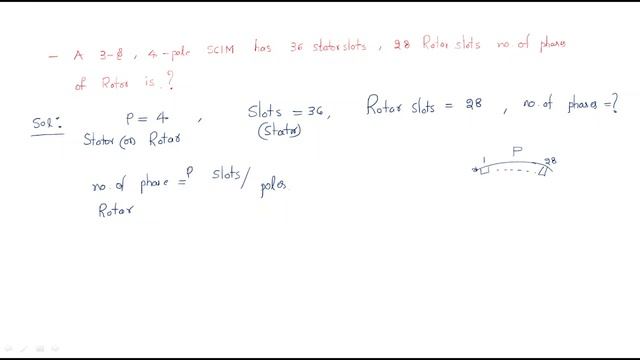 - A 3-ϕ, 4-pole SCIM has 36 stator slots, 28 Rotor slots no. of phases
of Rotor is ?
Sol: P = 4, Slots = 36, Rotar slots = 28, no. of phases = ?
Stator (or) Rotar (Stator)
P
1 28
no. of phase = P slots / poles
Rotar